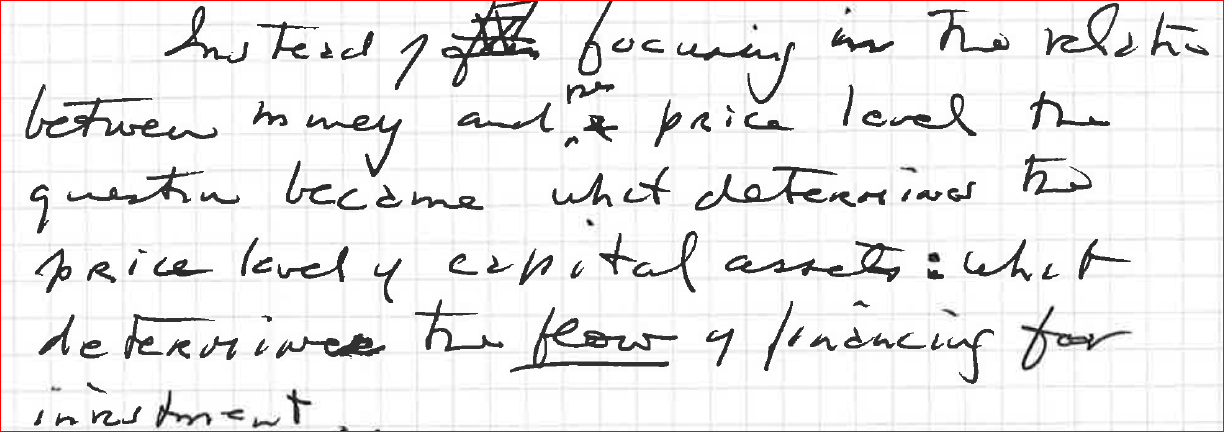 Instead of focusing in the relatio
between money and the price level the
question became what determines the
price level of capital assets: what
determines the flow of financing for
investment.